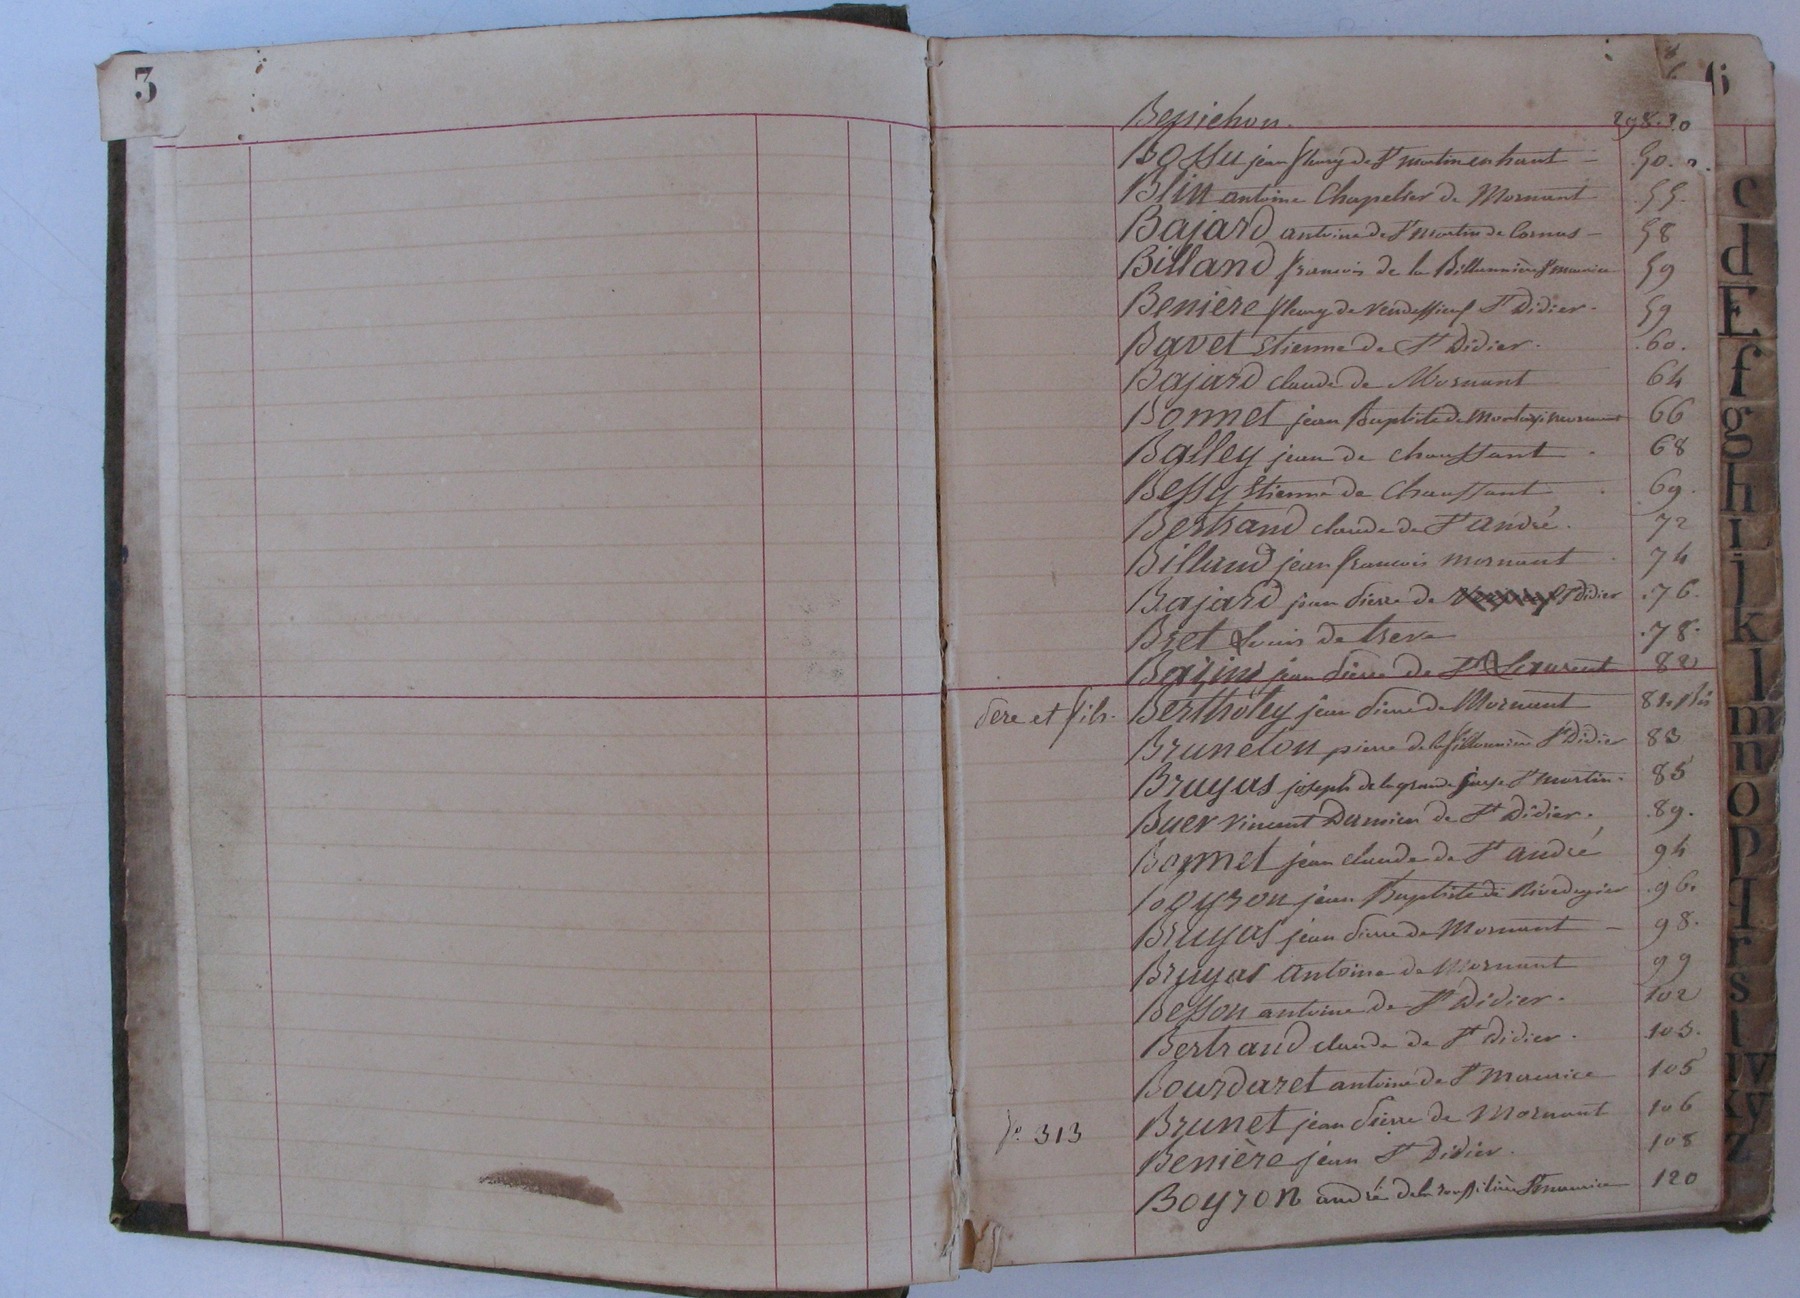 3
6
Bessichon. 298.20
Bossu jean fleury de St martin en haut - 50.
Blin antoine Chapelier de Mornant 55.
Bajard antoine de St Martin de Cornas - 58
Billand francois de la Billannière St maurice 59
Benière fleury de St Didier. 59
Bavet Etienne de St Didier. .60.
Bajard claude de Mornant 64
Bonnet jean Baptiste de mornant 66
Balley jean de chaussant 68
Bessy Etienne de Chaussant 69.
Bertrand claude de St André. 72
Billand jean francois mornant 74
Bajard jean Pierre de St Didier .76.
Bret Louis de treve .78.
Bazin jean Pierre de St Laurent 82
Père et fils. Bertholey jean Pierre de Mornant 81. bis
Brunelon pierre de la St Didier 83
Bruyas joseph de la grande St martin. 85
Buer vincent Damien de St Didier. .89.
Bonnet jean claude de St andré 94
Boyron jean Baptiste de Rivedegier .96.
Bruyas jean Pierre de Mornant - 98.
Bruyas Antoine de Mornant 99
Besson antoine de St Didier. 102
Bertrand claude de St Didier. 103.
Bourdaret antoine de St Maurice 105
Brunet jean Pierre de Mornant 106
fo. 313
Benière jean St Didier. 108
Boyron andré de la St maurice 120
c
d
E
f
g
h
i
j
k
l
m
n
o
p
r
s
t
z